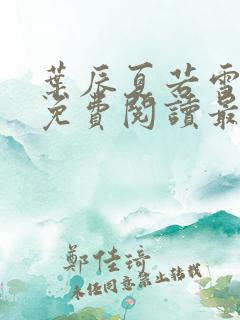 葉辰夏若雪
免費閱讀最
鄭佳琦
未經同意禁止轉載